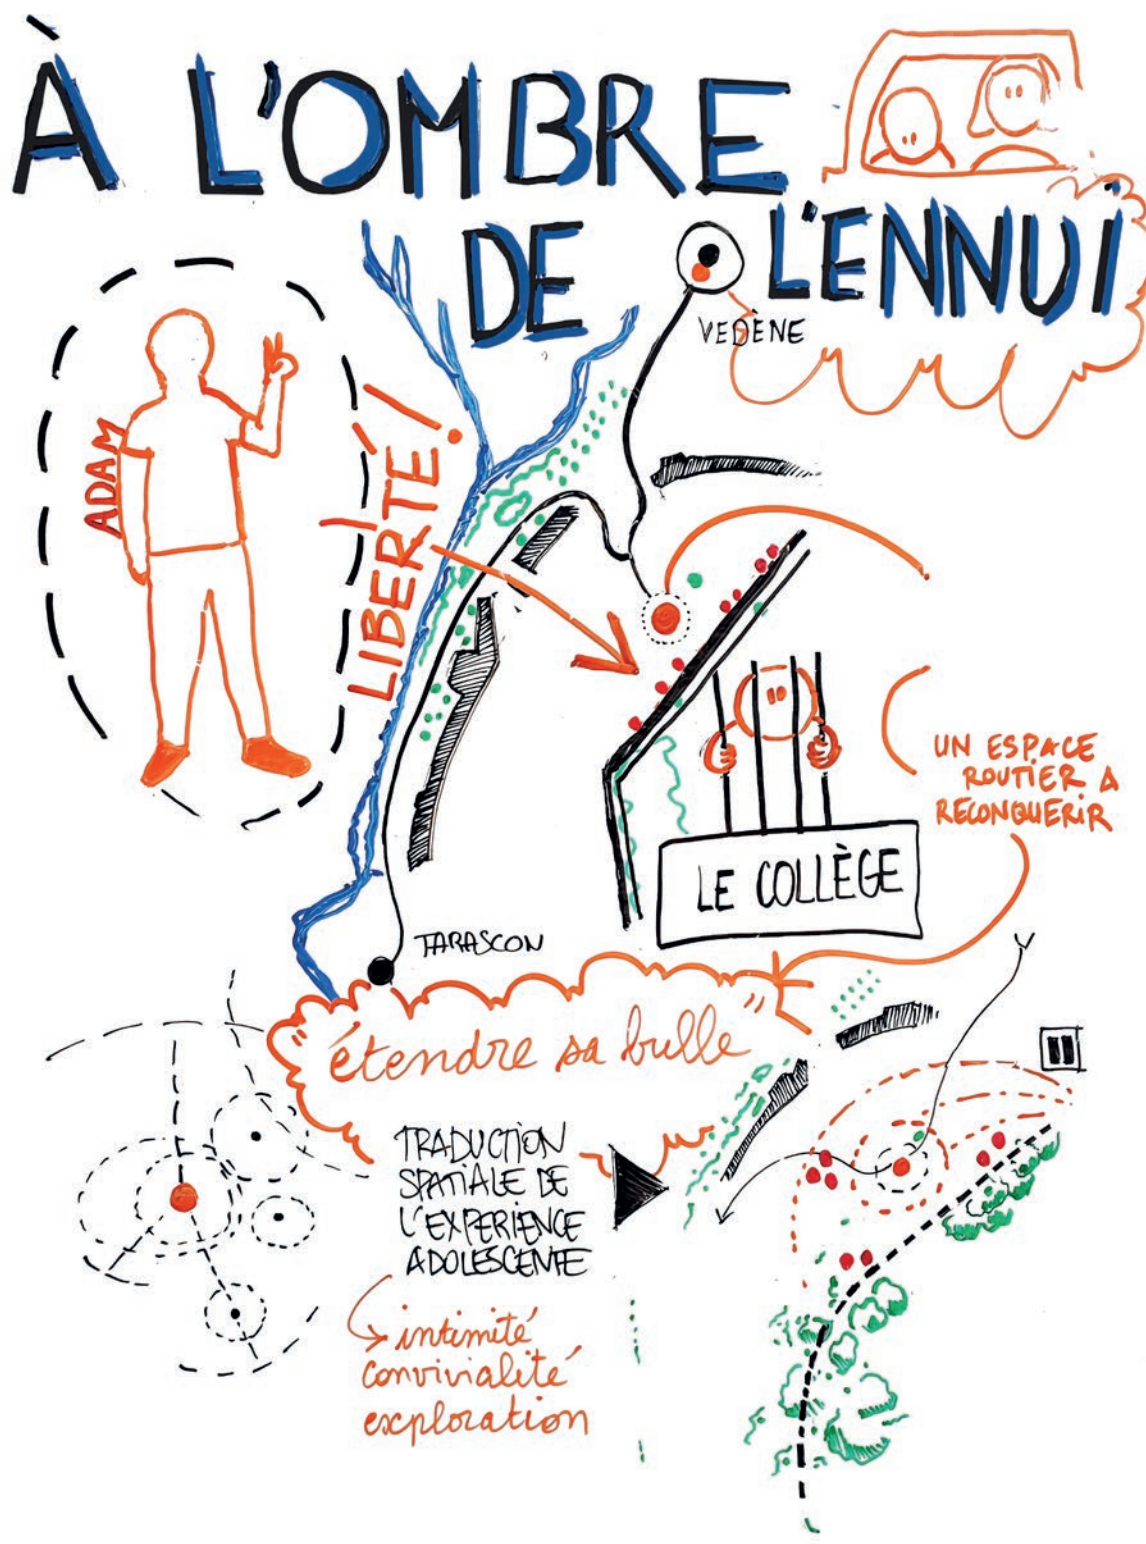 À L'OMBRE
DE L'ENNUI
VEDÈNE
ADAM
LIBERTÉ!
UN ESPACE
ROUTIER A
RECONQUERIR
LE COLLÈGE
TARASCON
étendre sa bulle
TRADUCTION
SPATIALE DE
L'EXPERIENCE
ADOLESCENTE
intimité
convivialité
exploration